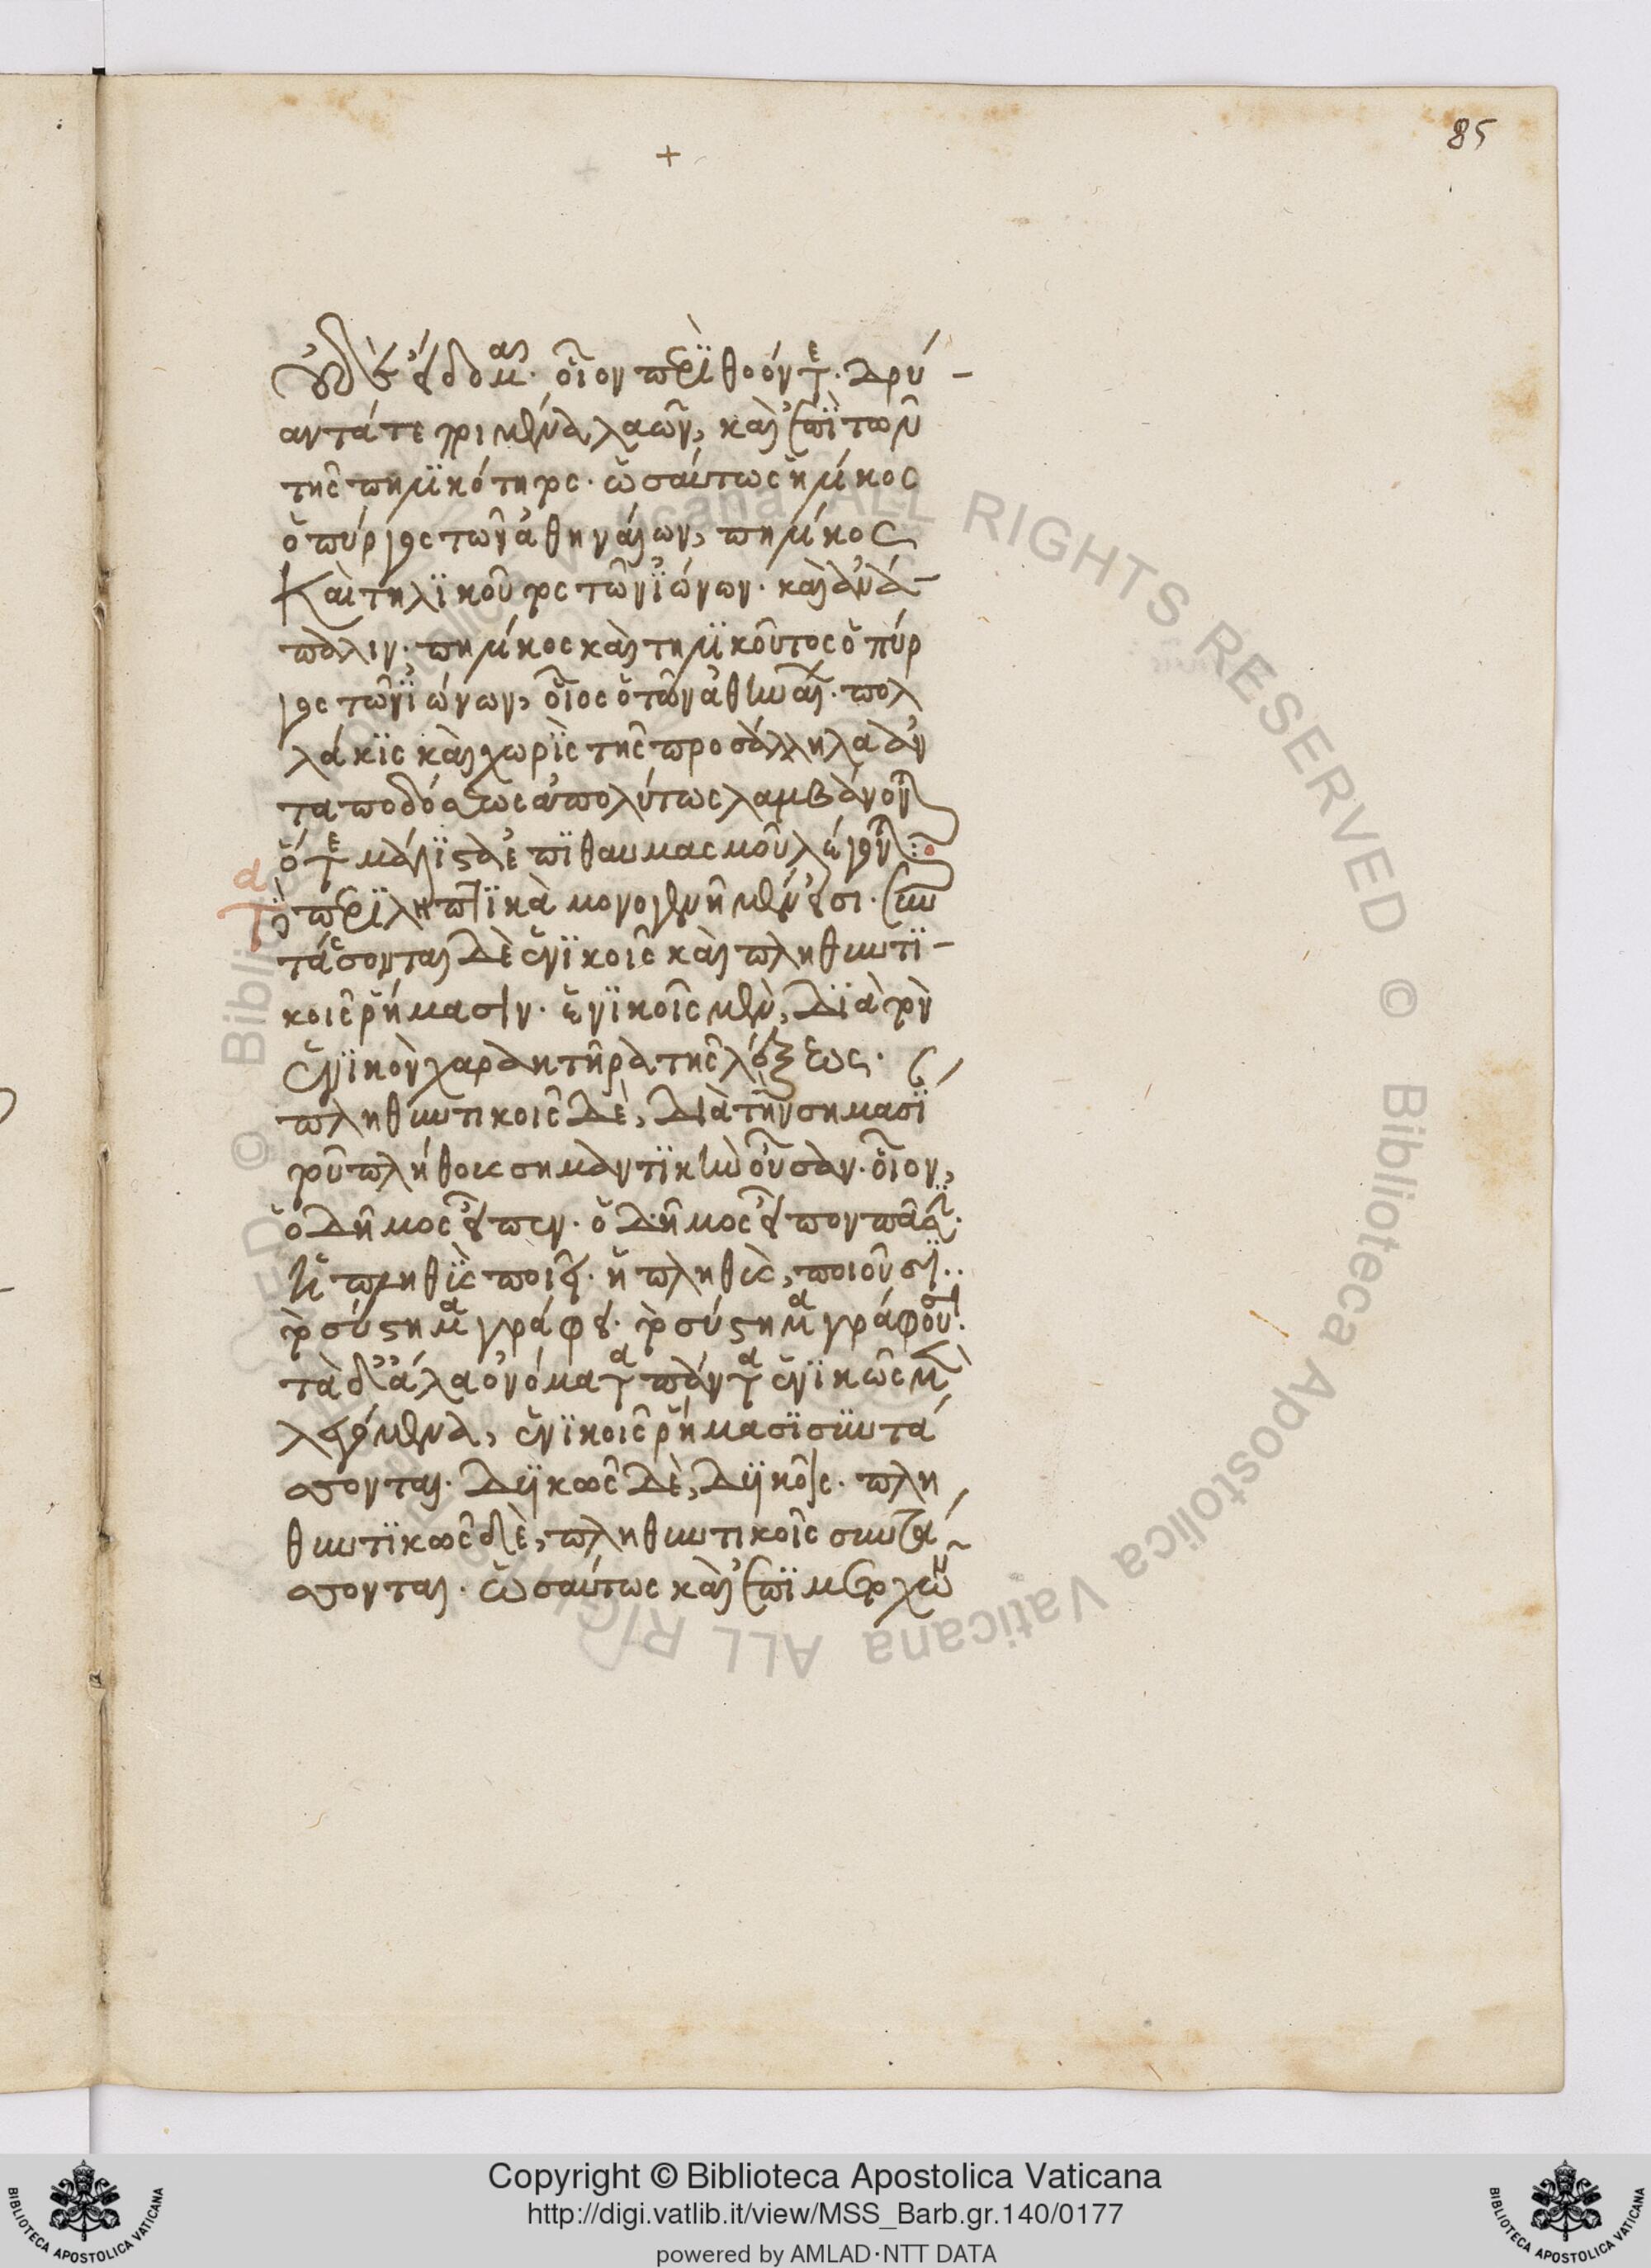 85
+
οὐδὲν ἑδομαι. οἷον περιθοόντε. δρύ-
αντά τε κρινέμεναι λαῶν, καὶ ἐπὶ τοῦ
τῆς πηλικότητος. ὡσαύτως ἡλίκος
ὁ πύργος τῶν ἀθηναίων, πηλίκος
καὶ τηλικοῦτος τῶν ϊώνων. καὶ ἀνά-
παλιν. πηλίκος καὶ τηλικοῦτος ὁ πύρ
γος τῶν ϊώνων, οἷος ὁ τῶν ἀθηναίων. πολ
λάκις καὶ χωρὶς τῆς προσάλληλα ἀν
ταποδόσεως ἀπολύτως λαμβάνονται
ὅτε μάλιστα ἐπὶ θαυμασμοῦ λέγονται:
Τὰ περιληπτικὰ μονογενῆ μέν εἰσι. συν
τάσσονται δὲ ἑνικοῖς καὶ πληθυντι-
κοῖς ῥήμασιν. ἑνικοῖς μὲν, διὰ τὸν
ἑνικὸν χαρακτῆρα τῆς λέξεως.
πληθυντικοῖς δὲ, διὰ τὴν σημασί
τοῦ πλήθους σημαντικὴν οὖσαν. οἷον,
ὁ δῆμος εἶπεν. ὁ δῆμος εἶπον
ἡ πληθὺς ποιεῖ. ἡ πληθὺς, ποιοῦσι..
τὸ σύστημα γράφει. τὸ σύστημα γράφουσι.
τὰ δ' ἄλλα ὀνόματα πάντα ἑνικῶς μὲν
λεγόμενα, ἑνικοῖς ῥήμασι συντά
σσονται. δυϊκῶς δὲ, δυϊκοῖς. πλη
θυντικῶς δὲ, πληθυντικοῖς συντά
σσονται. ὡσαύτως καὶ ἐπὶ μετοχῶν
Copyright © Biblioteca Apostolica Vaticana
http://digi.vatlib.it/view/MSS_Barb.gr.140/0177
powered by AMLAD·NTT DATA
BIBLIOTECA APOSTOLICA VATICANA
BIBLIOTECA APOSTOLICA VATICANA